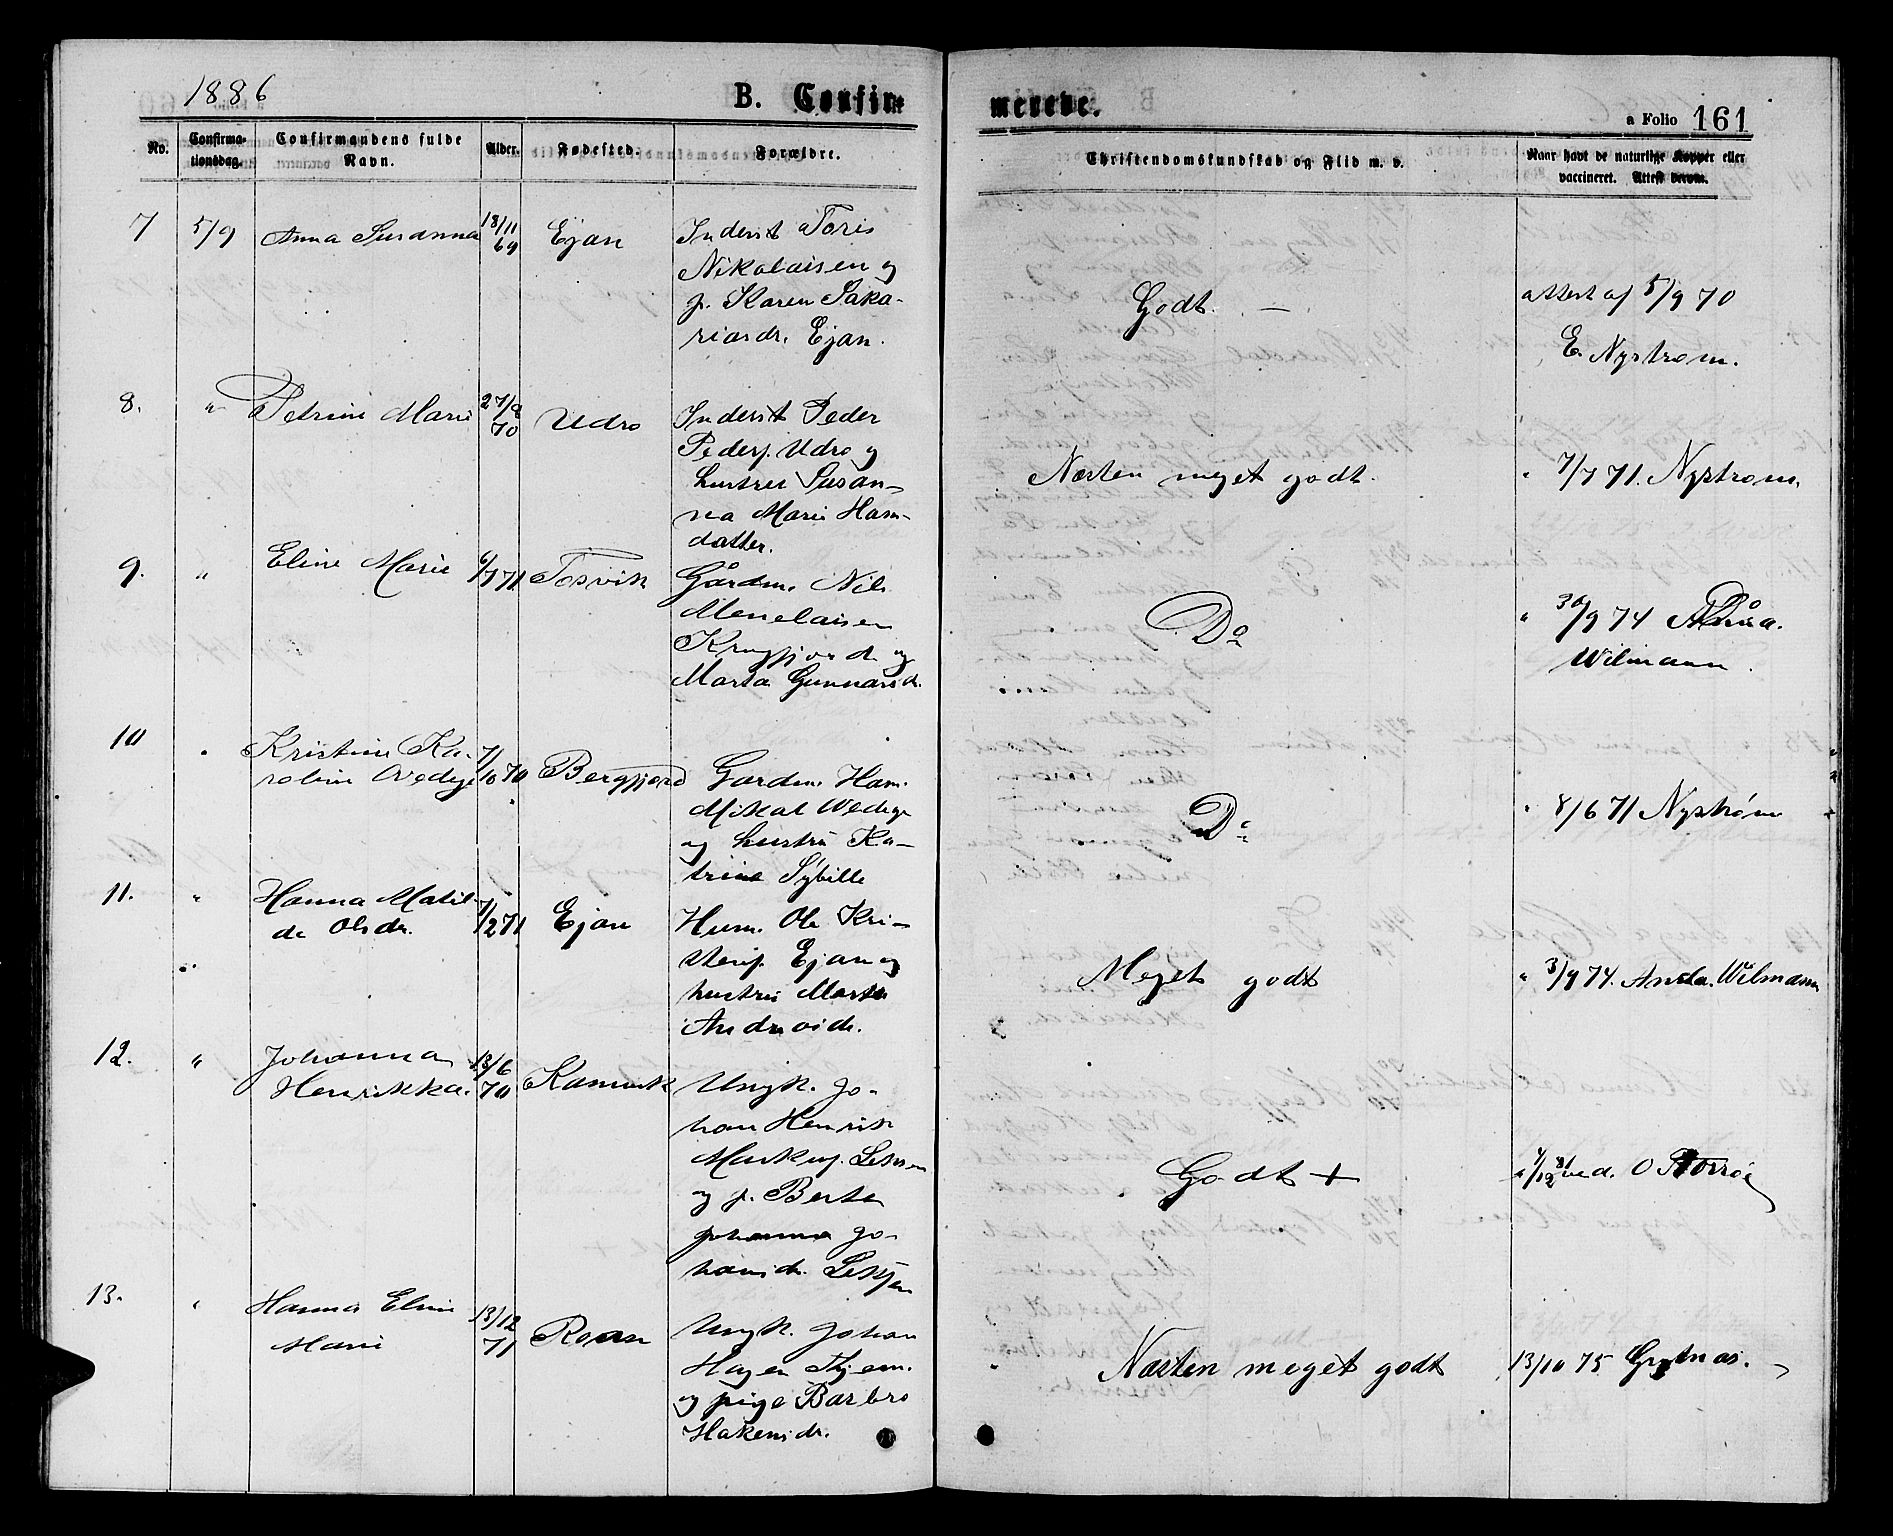 1886
B. Confirmerede.
a Folio 161
No.
Confirma-
tionsdag.
Confirmandens fulde
Navn.
Alder.
Fødested.
Forældre.
Christendomskundskab og Flid m. v.
Naar havt de naturlige Kopper eller
vaccineret. Attest derom.
7 5/9 Anna Susanna 18/11 69 Ejan
Inderst Toris
Nikolaisen og
p. Karen Saka-
riasdr. Ejan.
Godt. —
attest af 5/9 70
E. Nystrom.
8. " Petrine Marie 27/8 70 Udro
Inderst Peder
Peders. Udro og
hustru Susan-
na Marie Hans-
datter.
Næsten meget godt.
" 7/7 71. Nystrom.
9. " Eline Marie 6/7 71 Tosvik
Gårdm. Nils
Menelaisen
og
Marta Gunnarsd.
Do
" 30/9 74
Wilmann.
10 " Kristine Ka-
roline Wedege 7/10 70 Bergfjord
Gardm. Hans
Mikal Wedege
og hustru Ka-
trine Sybille
Do
" 8/6 71 Nystrøm
11. " Hanna Matil-
de Olsdr. 7/2 71 Ejan
Husm. Ole Kri-
stens. Ejan og
hustru Marta
Andr
Meget godt
" 3/9 74. Wilmann
12. " Johanna
Henrikka. 13/6 70
Ungk. Jo-
han Henrik
Markus.
og p. Berte
Johanna Jo-
hansdr.
Godt +
" ved. O
13. " Hanna Eline
Marie 13/12 71 Roan
Ungk. Johan
Hagen
og pige Barbro
Hakensdr.
Næsten meget godt
13/10 75